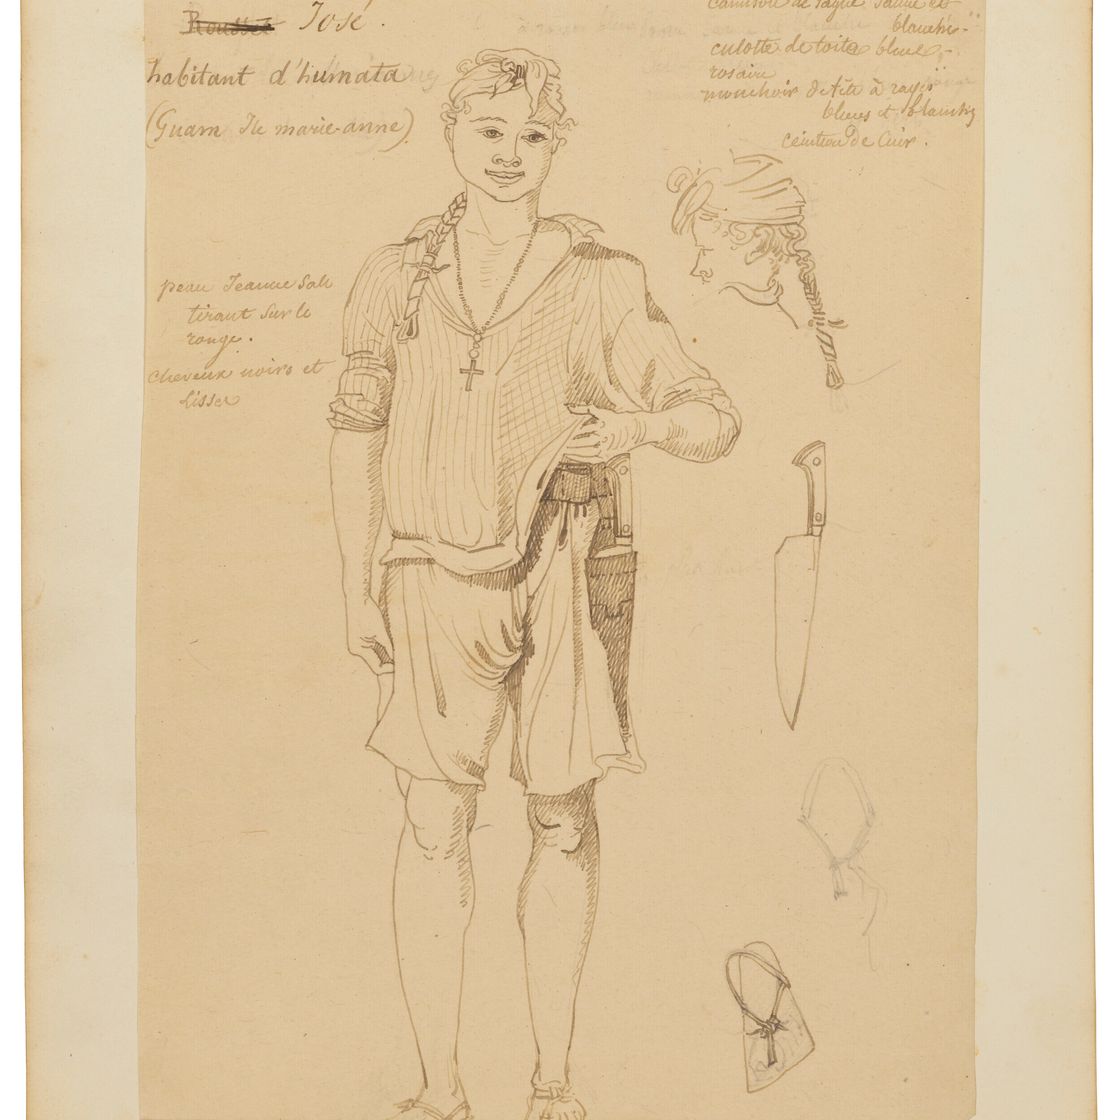 José.
habitant d'humata
(Guam Ile marie-anne)
camisole de pagne jaune et
blanche-
culotte de toile bleue-
rosaire
mouchoir de tête à rayes
bleues et blanches
ceinture de Cuir.
peau Jeaune Sale
tirant Sur le
rouge.
cheveux noirs et
Lisses